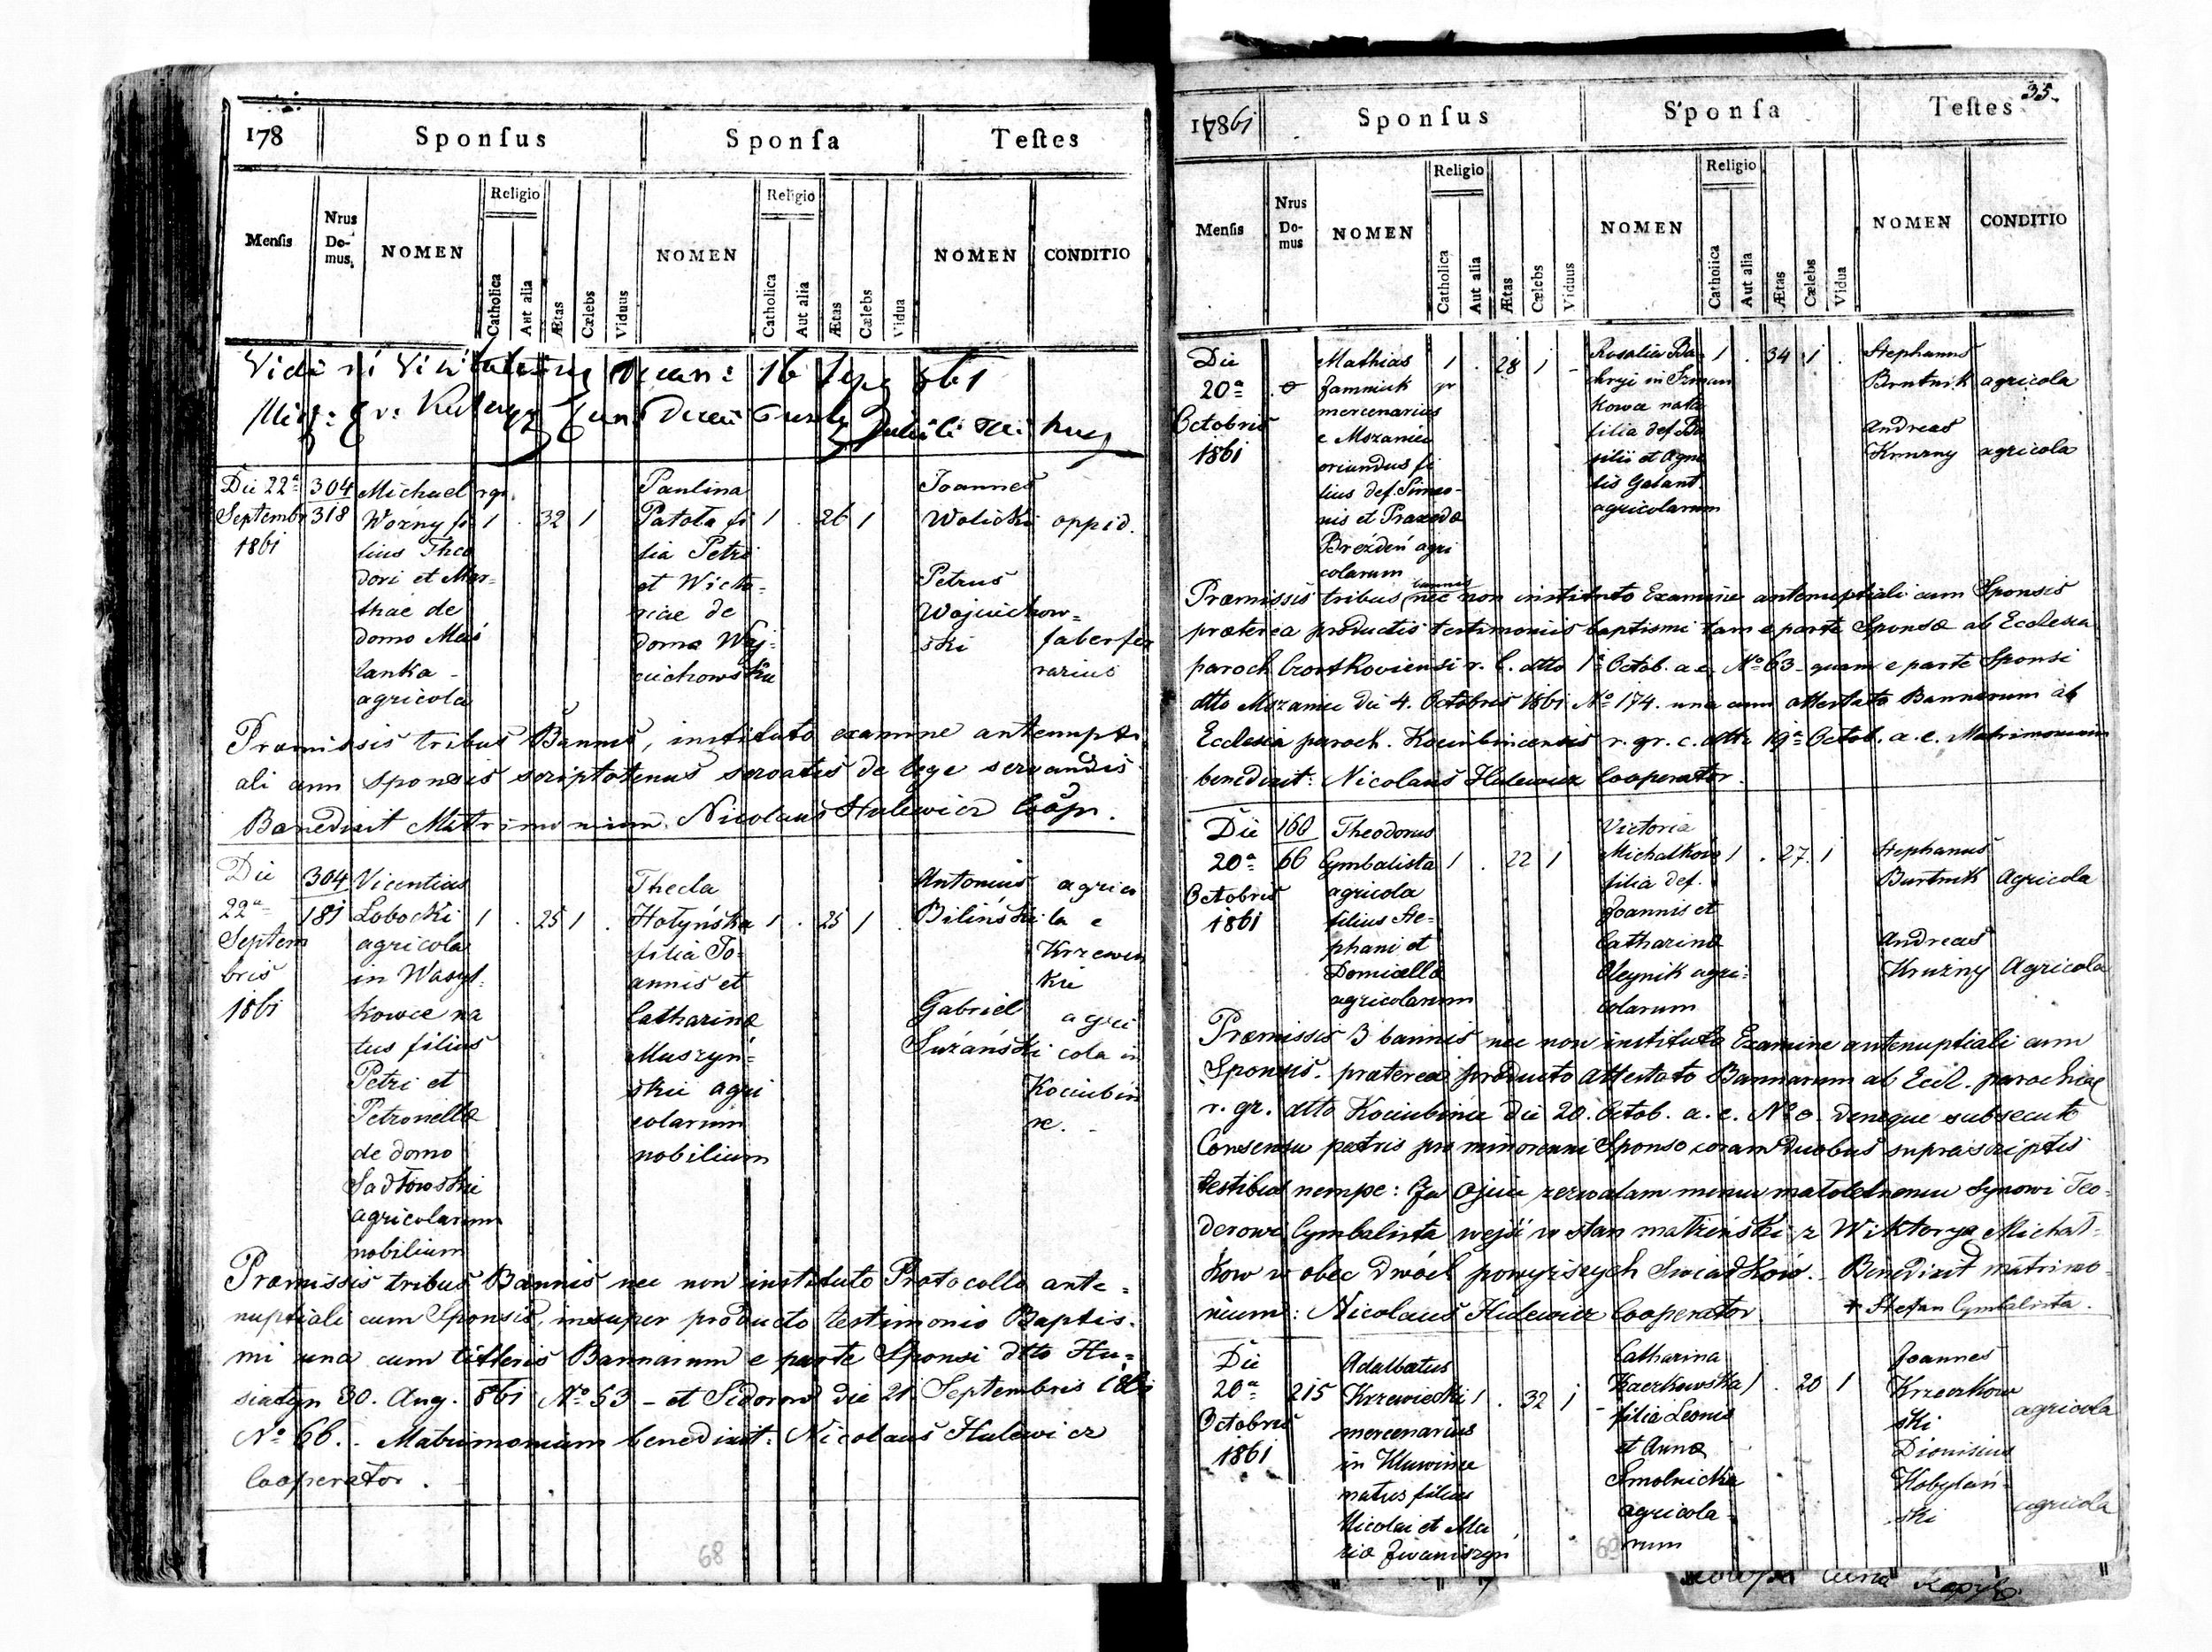 178
Sponsus
Sponsa
Testes
Mensis
Nrus Do-mus.
NOMEN
Religio
Catholica
Aut alia
Ætas
Cælebs
Viduus
NOMEN
Religio
Catholica
Aut alia
Ætas
Cælebs
Vidua
NOMEN
CONDITIO
Vidi in Visitatione Decan: 16 861
Die 22a
Septembr
1861
304
318
Michael rgr.
Woźny fi
lius Theo
dori et Mar-
thae de
domo Maś
lanka -
agricola
1 . 32 1
Paulina
Patota fi
lia Petri
et Wicto-
riae de
domo Woj-
ciichowska
1 . 26 1
Joannes
Wolicki oppid.
Petrus
Wojciichow-
ski faber fer
rarius
Præmissis tribus Bannis, instituto examine antenupti
ali cum sponsis scriptotenus servatis de lege servandis
Benedixit Matrimonium. Nicolaus Hulewicz Coopr.
Die
22a
Septem
bris
1861
304
181
Vicentius
Lobocki
agricola
in Wasyl-
kowce na
tus filius
Petri et
Petronellæ
de domo
Sadłowskie
agricolarum
nobilium
1 . 25 1 .
Thecla
Hołyńska
filia Jo-
annis et
Catharinæ
Muszyń-
skie agri
colarum
nobilium
1 . 25 1 .
Antonius agrico
Biliński la e
Krzewen
kie
Gabriel agri
Surański cola in
Kociubin
ce. -
Præmissis tribus Bannis nec non instituto Protocollo ante-
nuptiali cum Sponsis, insuper producto testimonio Baptis-
mi una cum litteris Bannarum e parte Sponsi dtto Hu-
siatyn 30. Aug. 861 No 53 - et Sidorow die 21 Septembris 1861
No 66. . Matrimonium benedixit: Nicolaus Hulewicz
Cooperator .
68
35.
17861
Sponsus
Sponsa
Testes
Mensis
Nrus Do-mus
NOMEN
Religio
Catholica
Aut alia
Ætas
Cælebs
Viduus
NOMEN
Religio
Catholica
Aut alia
Ætas
Cælebs
Vidua
NOMEN
CONDITIO
Die
20a
Octobris
1861
Mathias
Jamniuk gr
mercenarius
e Mszaniec
oriundus fi
lius def. Simeo-
nis et Praxedæ
Brezdeń agri
colarum
1 . 28 1 -
Rosalia Ba
kryj in Szman
kowce nata
filia def. Ba
silii et Agne
tis Galant.
agricolarum
1 . 34 1 .
Stephanus
Brutnik agricola
Andreas
Kruzny agricola
Præmissis tribus bannis nec non instituto Examine antenuptiali cum Sponsis
præterea productis testimoniis baptismi tam e parte Sponsæ ab Ecclesia
paroch. r. l. dtto 1 Octob. a. c. No 63 - quam e parte Sponsi
dtto Mszaniec die 4. Octobris 1861 No 174. una cum attestato Bannarum ab
Ecclesia paroch. Kociubincensis r. gr. c. dtto 19a Octob. a. c. Matrimonium
benedixit: Nicolaus Hulewicz Cooperator.
Die
20a
Octobris
1861
160
66
Theodorus
Cymbalista
agricola
filius Ste-
phani et
Domicellæ
agricolarum
1 . 22 1
Victoria
Michalkow
filia def.
Joannis et
Catharinæ
Oleynik agri-
colarum
1 . 27. 1
Stephanus
Burtnik Agricola
Andreas
Kruzny Agricola
Præmissis 3 bannis nec non instituto Examine antenuptiali cum
Sponsis. præterea producto Attestato Bannarum ab Eccl. parochiae
r. gr. dtto Kociubince die 20. Octob. a. c. No 0. denique subsecuto
Consensu patris pro minorenni Sponso coram Duobus supra scriptis
testibus nempe: Ja Ojciec zezwalam memu małoletnemu synowi Teo-
derowi Cymbalista wejść w stan małżeński z Wiktoryą Michał-
kow w obec dwóch powyższych Swiadków. Benedixit matrimo-
nium: Nicolaus Hulewicz Cooperator
+ Stefan Cymbalista.
Die
20a
Octobris
1861
215
Adalbertus
Krzewiecki
mercenarius
in Kluwince
natus filius
Nicolai et Ma
riæ Iwaniszyn
1 . 32 1 -
Catharina
Kaczkowska
filia Leonis
et Annæ
Smolnicka
agricola-
rum
1 . 20 1
Joannes
Krzaczkow
ski agricola
Dionisius
Kobylań-
ski agricola
69